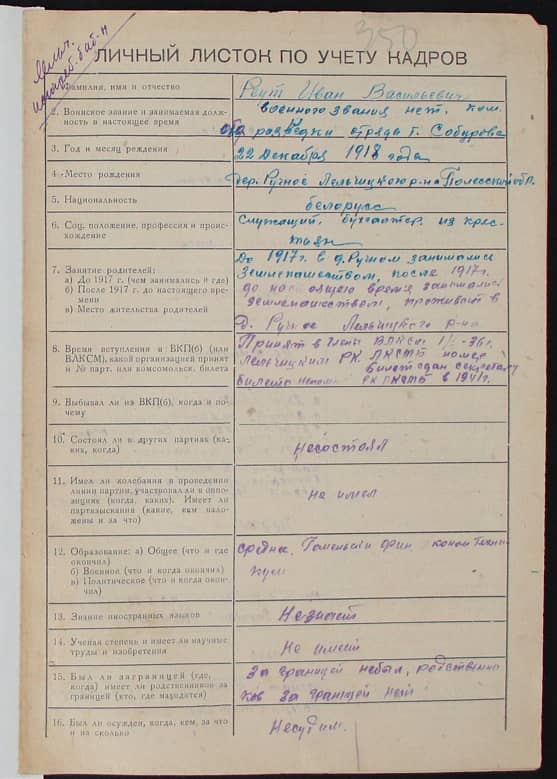 350
ЛИЧНЫЙ ЛИСТОК ПО УЧЕТУ КАДРОВ
Фамилия, имя и отчество
Реут Иван Васильевич
2. Воинское звание и занимаемая долж-
ность в настоящее время
военного звания нет. ком.
разведки отряда г. Сабурова
3. Год и месяц рождения
22 Декабря 1918 года
4. Место рождения
дер. Ручное Лельчицкого р-на Полесской обл.
5. Национальность
беларус
6. Соц. положение, профессия и проис-
хождение
служащий, бухгалтер. из крес-
тьян
7. Занятие родителей:
а) До 1917 г. (чем занимались и где)
б) После 1917 г. до настоящего вре-
мени
в) Место жительства родителей
До 1917 г. в д. Ручном занимались
землепашеством, после 1917 г.
до настоящего время занимались
землепашеством, проживают в
д. Ручное Лельчицкого р-на
8. Время вступления в ВКП(б) (или
ВЛКСМ), какой организацией принят
и № парт. или комсомольск. билета
Принят в члены ВЛКСМ -36 г.
Лельчицким РК ЛКСМБ номер
билет сдан секретарю
билета РК ЛКСМБ в 1941 г.
9. Выбывал ли из ВКП(б), когда и по-
чему
10. Состоял ли в других партиях (ка-
ких, когда)
несостоял
11. Имел ли колебания в проведении
линии партии, участвовал ли в оппо-
зициях (когда, каких). Имеет ли
партвзыскания (какие, кем нало-
жены и за что)
не имел
12. Образование: а) Общее (что и где
окончил)
б) Военное (что и когда окончил)
в) Политическое (что и когда окон-
чил)
среднее, Гомельский фин. эконом техни-
кум
13. Знание иностранных языков
Незнает
14. Ученая степень и имеет ли научные
труды и изобретения
Не имеет
15. Был ли заграницей (где,
когда) имеет ли родственников за
границей (кто, где находится)
За границей небыл, родственни-
ков за границей нет
16. Был ли осужден, когда, кем, за что
и на сколько
Несудим.